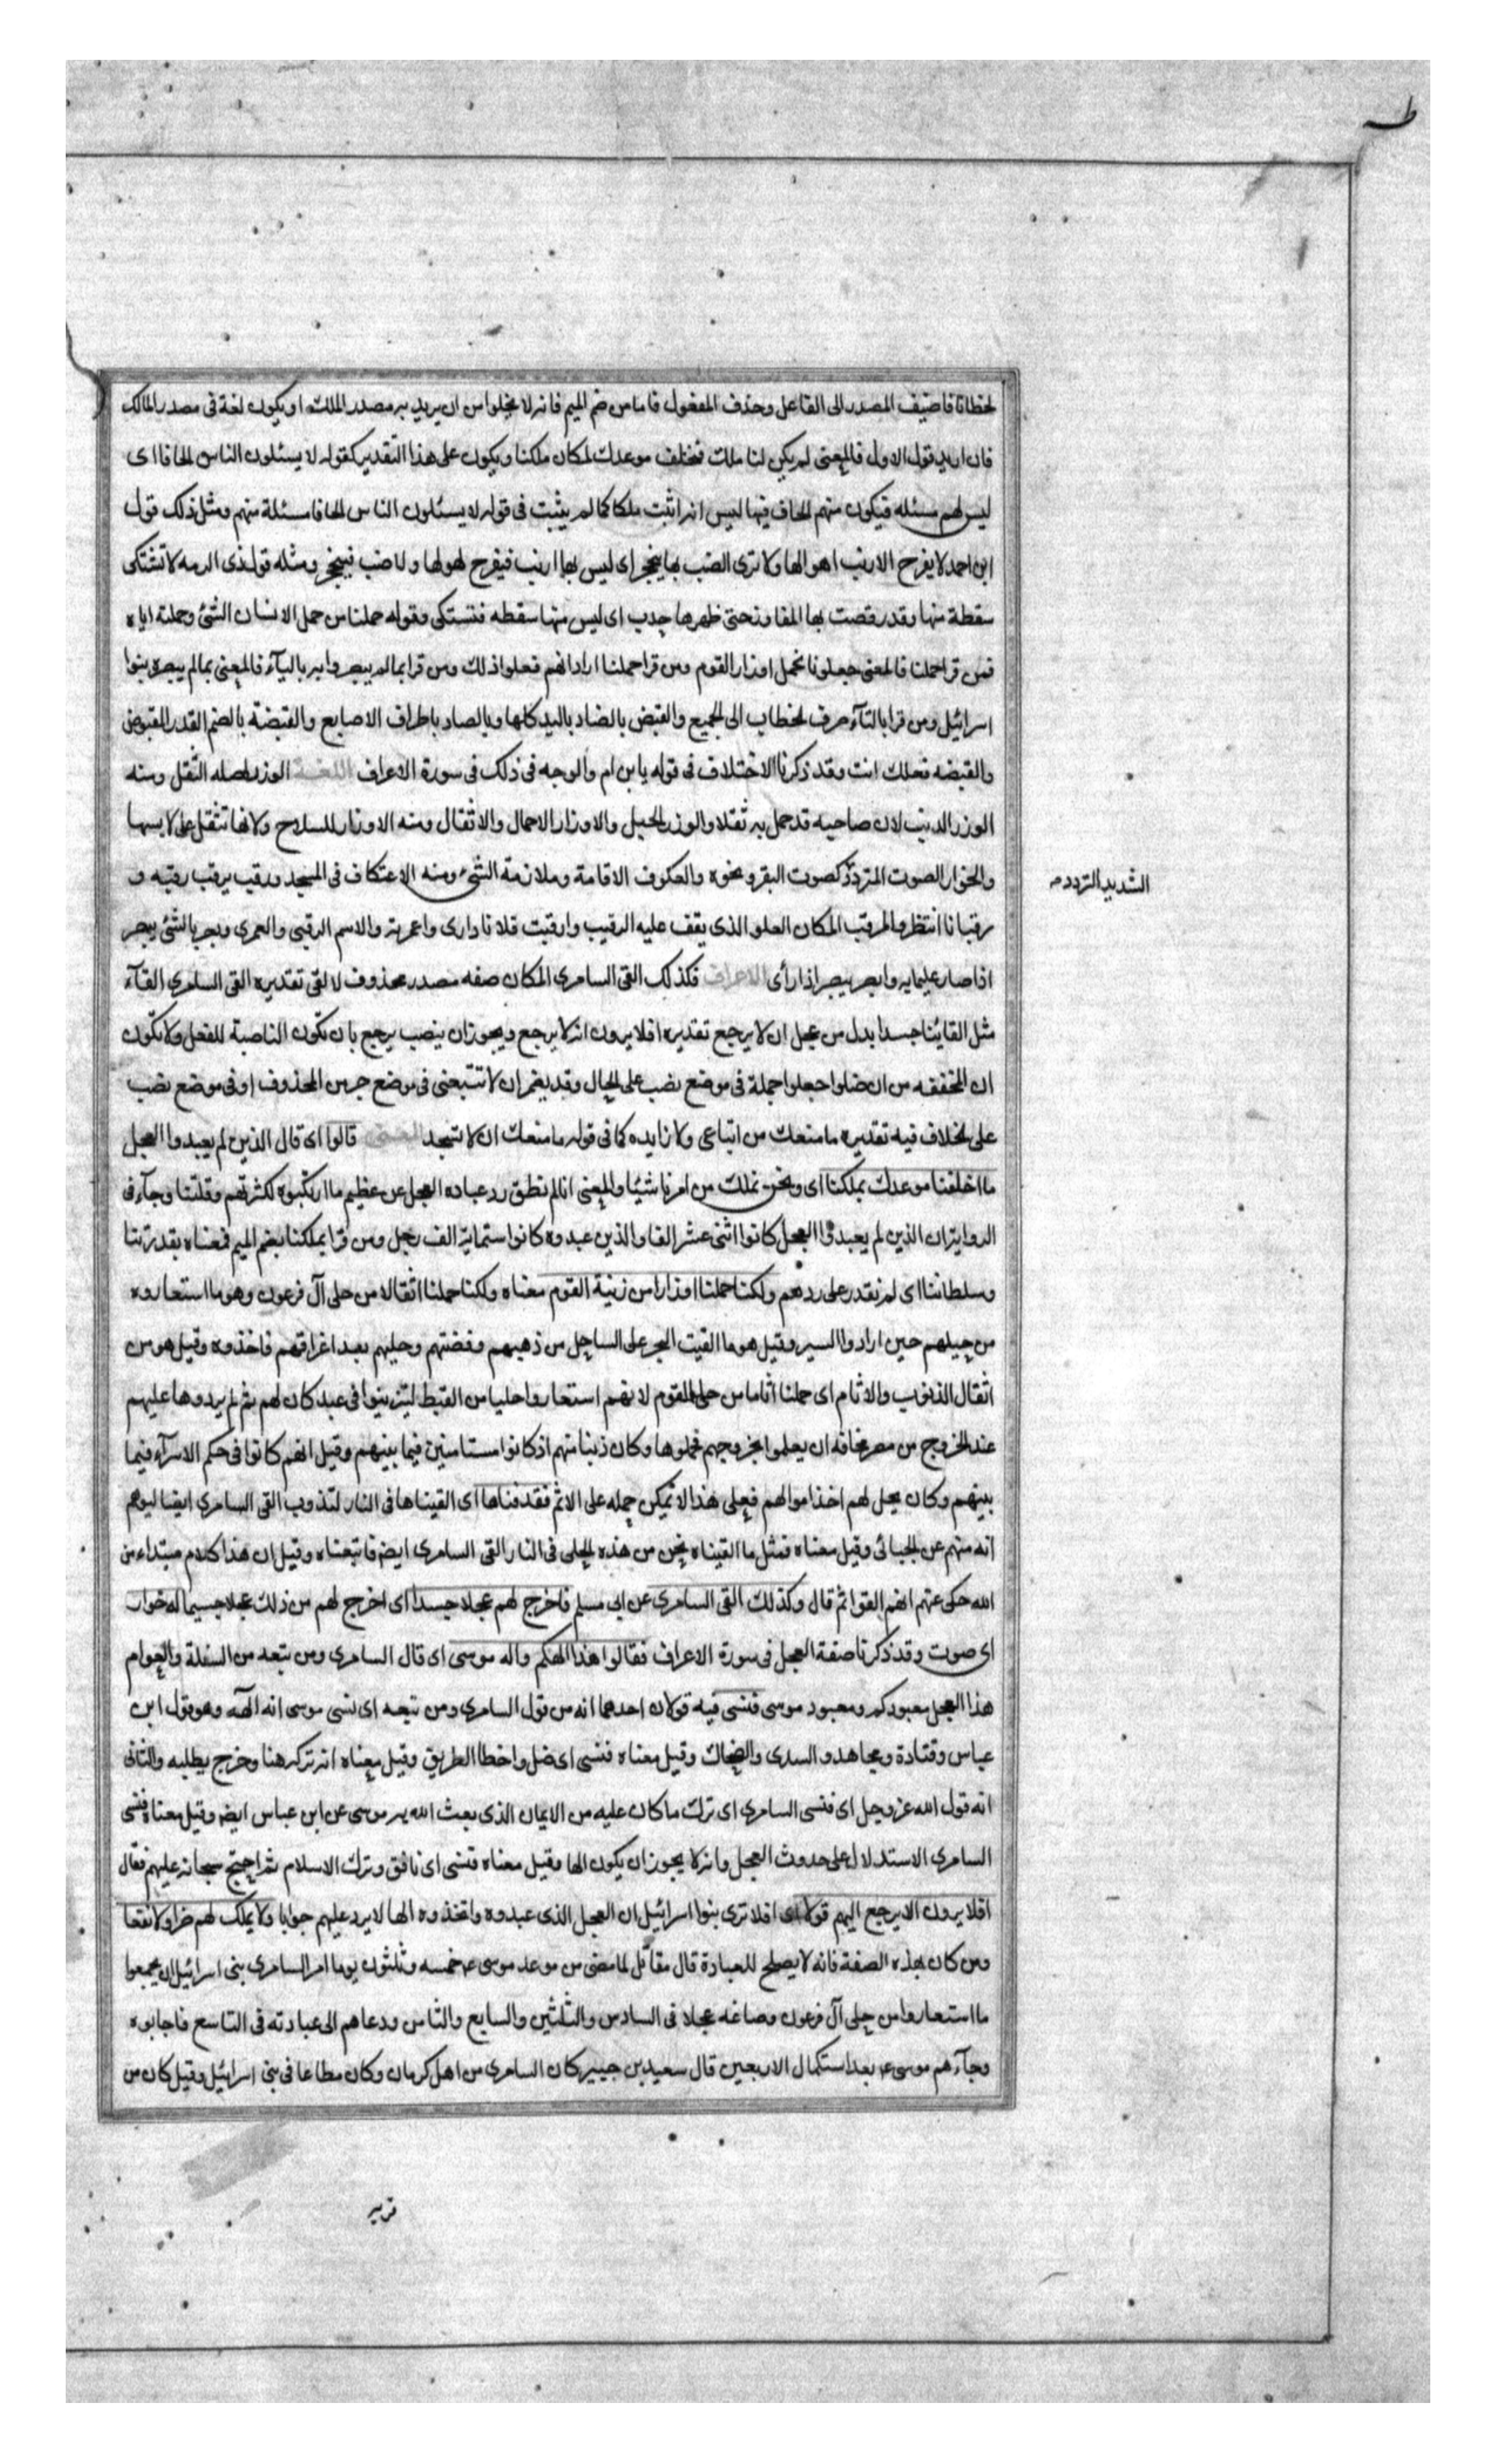 طه
لخطانا فاضيف المصدر الى الفاعل وحذف المفعول فاما من ضم الميم فانه لا يخلوا من ان يريد به مصدر الملك او يكون لغة فى مصدر المالك
فان اريد قول الاول فالمعنى لم يكن لنا ملك فنخلف موعدك لمكان ملكنا ويكون على هذا التقدير كقوله لا يسئلون الناس الحافا اى
ليس لهم مسئله فيكون منهم الحاف فيها ليس انه اثبت ملكا كما لم يثبت فى قوله لا يسئلون الناس الحافا مسئلة منهم ومثل ذلك قول
ابن احمد لا يفزع الارنب اهوالها ولا ترى الضب بها ينجحر اى ليس بها ارنب فيفزع لهولها ولا ضب فينجحر ومثله قول ذى الرمه لا تشتكى
سقطة منها وقد رقصت بها المفاوز حتى ظهرها حدب اى ليس منها سقطه فتستكى وقوله حملنا من حمل الانسان الشئ وحملته اياه
فمن قرا حملنا فالمعنى جعلونا نحمل اوزار القوم ومن قرا حملنا اراد انهم فعلوا ذلك ومن قرا بما لم يبصروا به بالياء فالمعنى بما لم يبصره بنوا
اسرائيل ومن قرا بالتآء صرف الخطاب الى الجميع والقبض بالضاد باليد كلها وبالصاد باطراف الاصابع والقبضة بالضم القدر المقبوض
والقبضه فعلك انت وقد ذكرنا الاختلاف فى قوله يا بن ام والوجه فى ذلك فى سورة الاعراف اللغــة الوزر اصله الثقل ومنه
الوزر الذنب لان صاحبه قد حمل به ثقلا والوزر الحبل والاوزار الاحمال والاثقال ومنه الاوزار للسلاح ولانها تثقل على لابسها
والخوار الصوت المتردد كصوت البقر ونحوه والعكوف الاقامة وملازمة الشئ ومنه الاعتكاف فى المسجد ورقب يرقب رقبه و
الشديد التردد م
رقبانا انتظر والمرقب المكان العلو الذى يقف عليه الرقيب وارقبت فلانا دارى واعمرته والاسم الرقبى والعمرى وبصر بالشئ يبصر
اذا صار عليما به وابصر يبصر اذا رأى الاعراف فكذلك القى السامرى المكان صفه مصدر محذوف لالقى تقديره القى السامرى القآء
مثل القائنا جسدا بدل من عجل ان لا يرجع تقديره افلا يرون انه لا يرجع ويجوز ان ينصب يرجع بان تكون الناصبة للفعل ولا تكون
ان المخففه من ان ضلوا جعلوا جملة فى موضع نصب على الحال وقد يضم ان لا تتبعنى فى موضع جر من المحذوف او فى موضع نصب
على الخلاف فيه تقديره ما منعك من اتباعى ولا زايده كما فى قوله ما منعك ان لا تسجد المعنى قالوا اى قال الذين لم يعبدوا العجل
ما اخلفنا موعدك بملكنا اى ونحن نملك من امرنا شيئا والمعنى انا لم نطق رد عباده العجل عن عظيم ما ارتكبوه لكثرتهم وقلتنا وجآء فى
الروايه ان الذين لم يعبدوا العجل كانوا اثنى عشر الفا والذين عبدوه كانوا ستمائة الف رجل ومن قرا بملكنا بضم الميم فمعناه بقدرتنا
وسلطاننا اى لم نقدر على ردهم ولكنا حملنا اوزارا من زينة القوم معناه ولكنا حملنا اثقالا من حلى آل فرعون وهو ما استعاروه
من حيلهم حين ارادوا السير وقيل هو ما القيت البحر على الساحل من ذهبهم وفضتهم وحليهم بعد اغراقهم فاخذوه وقيل هو من
اثقال الذنوب والاثام اى حملنا اثاما من حلى القوم لانهم استعاروا حليا من القبط ليتزينوا فى عيد كان لهم ثم لم يردوها عليهم
عند الخروج من مصر مخافه ان يعلموا بخروجهم فحملوها وكان ذنبا منهم اذ كانوا مستامنين فيما بينهم وقيل انهم كانوا فى حكم الاسرآء فيما
بينهم وكان يحل لهم اخذ اموالهم فعلى هذا لا يمكن حمله على الاثم فقذفناها اى القيناها فى النار لتذوب القى السامرى ايضا ليوهم
انه منهم عن الجبائى وقيل معناه فمثل ما القيناه نحن من هذه الحلى فى النار القى السامرى ايضا فاتبعناه وقيل ان هذا كلام مبتداء من
الله حكى عنهم انهم القوا ثم قال وكذلك القى السامرى عن ابى مسلم فاخرج لهم عجلا جسدا اى اخرج لهم من ذلك عجلا جسيما له خوار
اى صوت وقد ذكرنا صفة العجل فى سورة الاعراف فقالوا هذا الهكم واله موسى اى قال السامرى ومن تبعه من السفلة والعوام
هذا العجل معبودكم ومعبود موسى فنسى فيه قولان احدهما انه من قول السامرى ومن تبعه اى نسى موسى انه الهه وهو قول ابن
عباس وقتادة ومجاهد والسدى والضحاك وقيل معناه فنسى اى ضل واخطا الطريق وقيل معناه انه تركه هنا وخرج يطلبه والثانى
انه قول الله عز وجل اى فنسى السامرى اى ترك ما كان عليه من الايمان الذى بعث الله به موسى عن ابن عباس ايضا وقيل معناه فنسى
السامرى الاستدلال على حدوث العجل وانه لا يجوز ان يكون الها وقيل معناه فنسى اى نافق وترك الاسلام ثم احتج سبحانه عليهم فقال
افلا يرون الا يرجع اليهم قولا اى افلا ترى بنوا اسرائيل ان العجل الذى عبدوه واتخذوه الها لا يرد عليهم جوابا ولا يملك لهم ضرا ولا نفعا
ومن كان بهذه الصفة فانه لا يصلح للعبادة قال مقاتل لما مضى من موعد موسى ع خمسه وثلثون يوما امر السامرى بنى اسرائيل ان يجمعوا
ما استعاروا من حلى آل فرعون وصاغه عجلا فى السادس والثلثين والسابع والثامن ودعاهم الى عبادته فى التاسع فاجابوه
وجآءهم موسى ع بعد استكمال الاربعين قال سعيد بن جبير كان السامرى من اهل كرمان وكان مطاعا فى بنى اسرائيل وقيل كان من
قريه